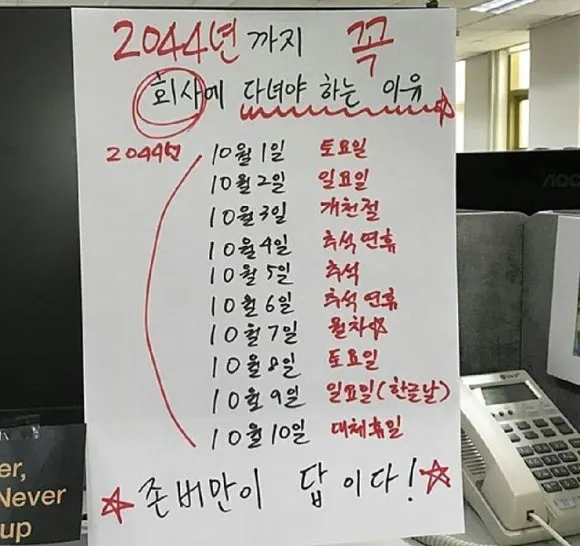 2044년 까지 꼭
회사에 다녀야 하는 이유
2044년 10월 1일 토요일
10월 2일 일요일
10월 3일 개천절
10월 4일 추석 연휴
10월 5일 추석
10월 6일 추석 연휴
10월 7일 월차
10월 8일 토요일
10월 9일 일요일(한글날)
10월 10일 대체휴일
존버만이 답이다!
er,
Never
up
AOC